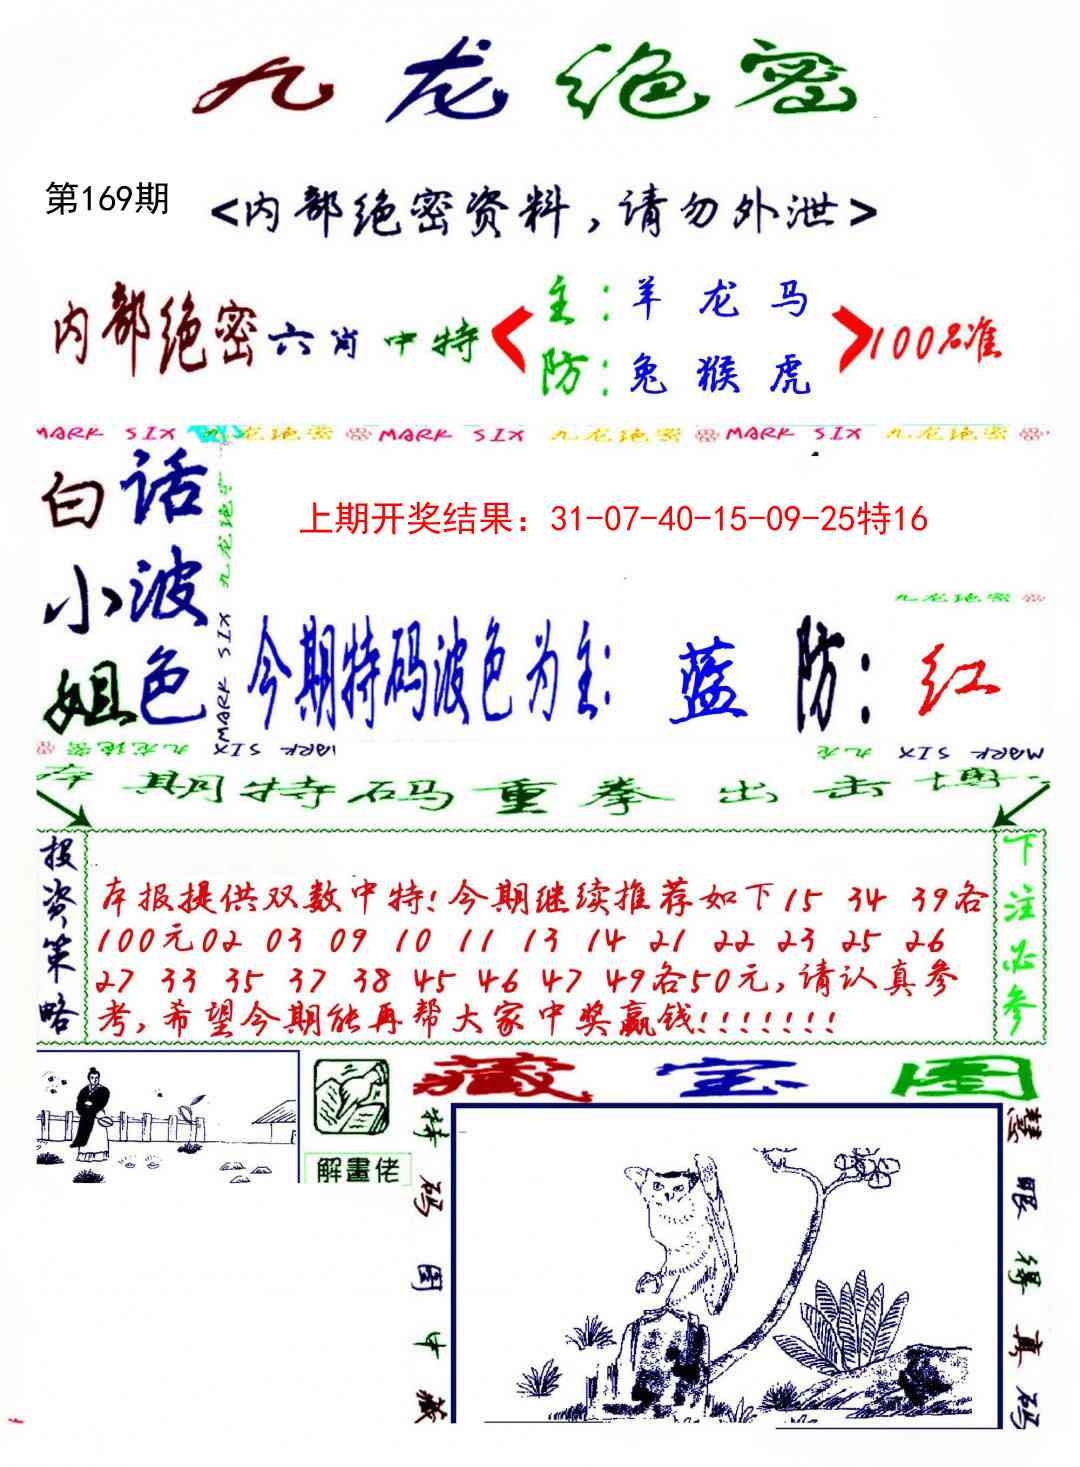 九龙绝密
第169期
<内部绝密资料,请勿外泄>
内部绝密六肖中特
主:羊 龙 马
防:兔 猴 虎
100%准
MARK SIX 九龙绝密 MARK SIX 九龙绝密 MARK SIX 九龙绝密
白小姐
话波色
九龙绝密
MARK SIX
上期开奖结果：31-07-40-15-09-25特16
九龙绝密
今期特码波色为主: 蓝 防: 红
九龙绝密 MARK SIX
九龙 MARK SIX
本期特码重拳出击博
投资策略
本报提供双数中特!今期继续推荐如下15 34 39各
100元02 03 09 10 11 13 14 21 22 23 25 26
27 33 35 37 38 45 46 47 49各50元,请认真参
考,希望今期能再帮大家中奖赢钱!!!!!!!
下注必参
解畫佬
藏宝图
特码图中藏
慧眼得真码